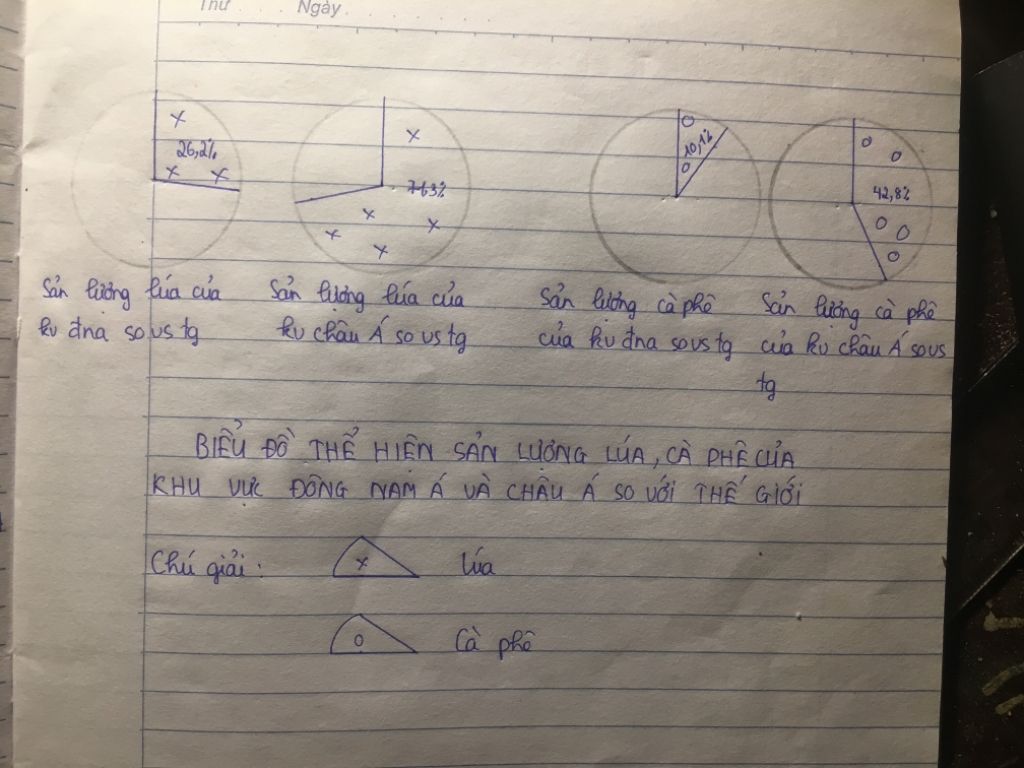 Thứ Ngày
26,2%
763%
10,1%
42,8%
Sản lượng lúa của
kv đna so vs tg
Sản lượng lúa của
kv châu Á so vs tg
Sản lượng cà phê
của kv đna so vs tg
Sản lượng cà phê
của kv châu Á so vs
tg
BIỂU ĐỒ THỂ HIỆN SẢN LƯỢNG LÚA, CÀ PHÊ CỦA
KHU VỰC ĐÔNG NAM Á VÀ CHÂU Á SO VỚI THẾ GIỚI
Chú giải:
x lúa
o Cà phê